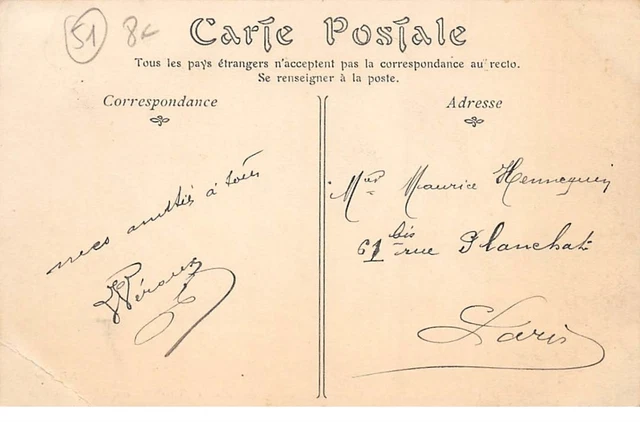 51 8€
Carte Postale
Tous les pays étrangers n'acceptent pas la correspondance au recto.
Se renseigner à la poste.
Correspondance
mes amitiés à tous
Adresse
Maurice Hennequin
61 bis rue Planchat
Paris